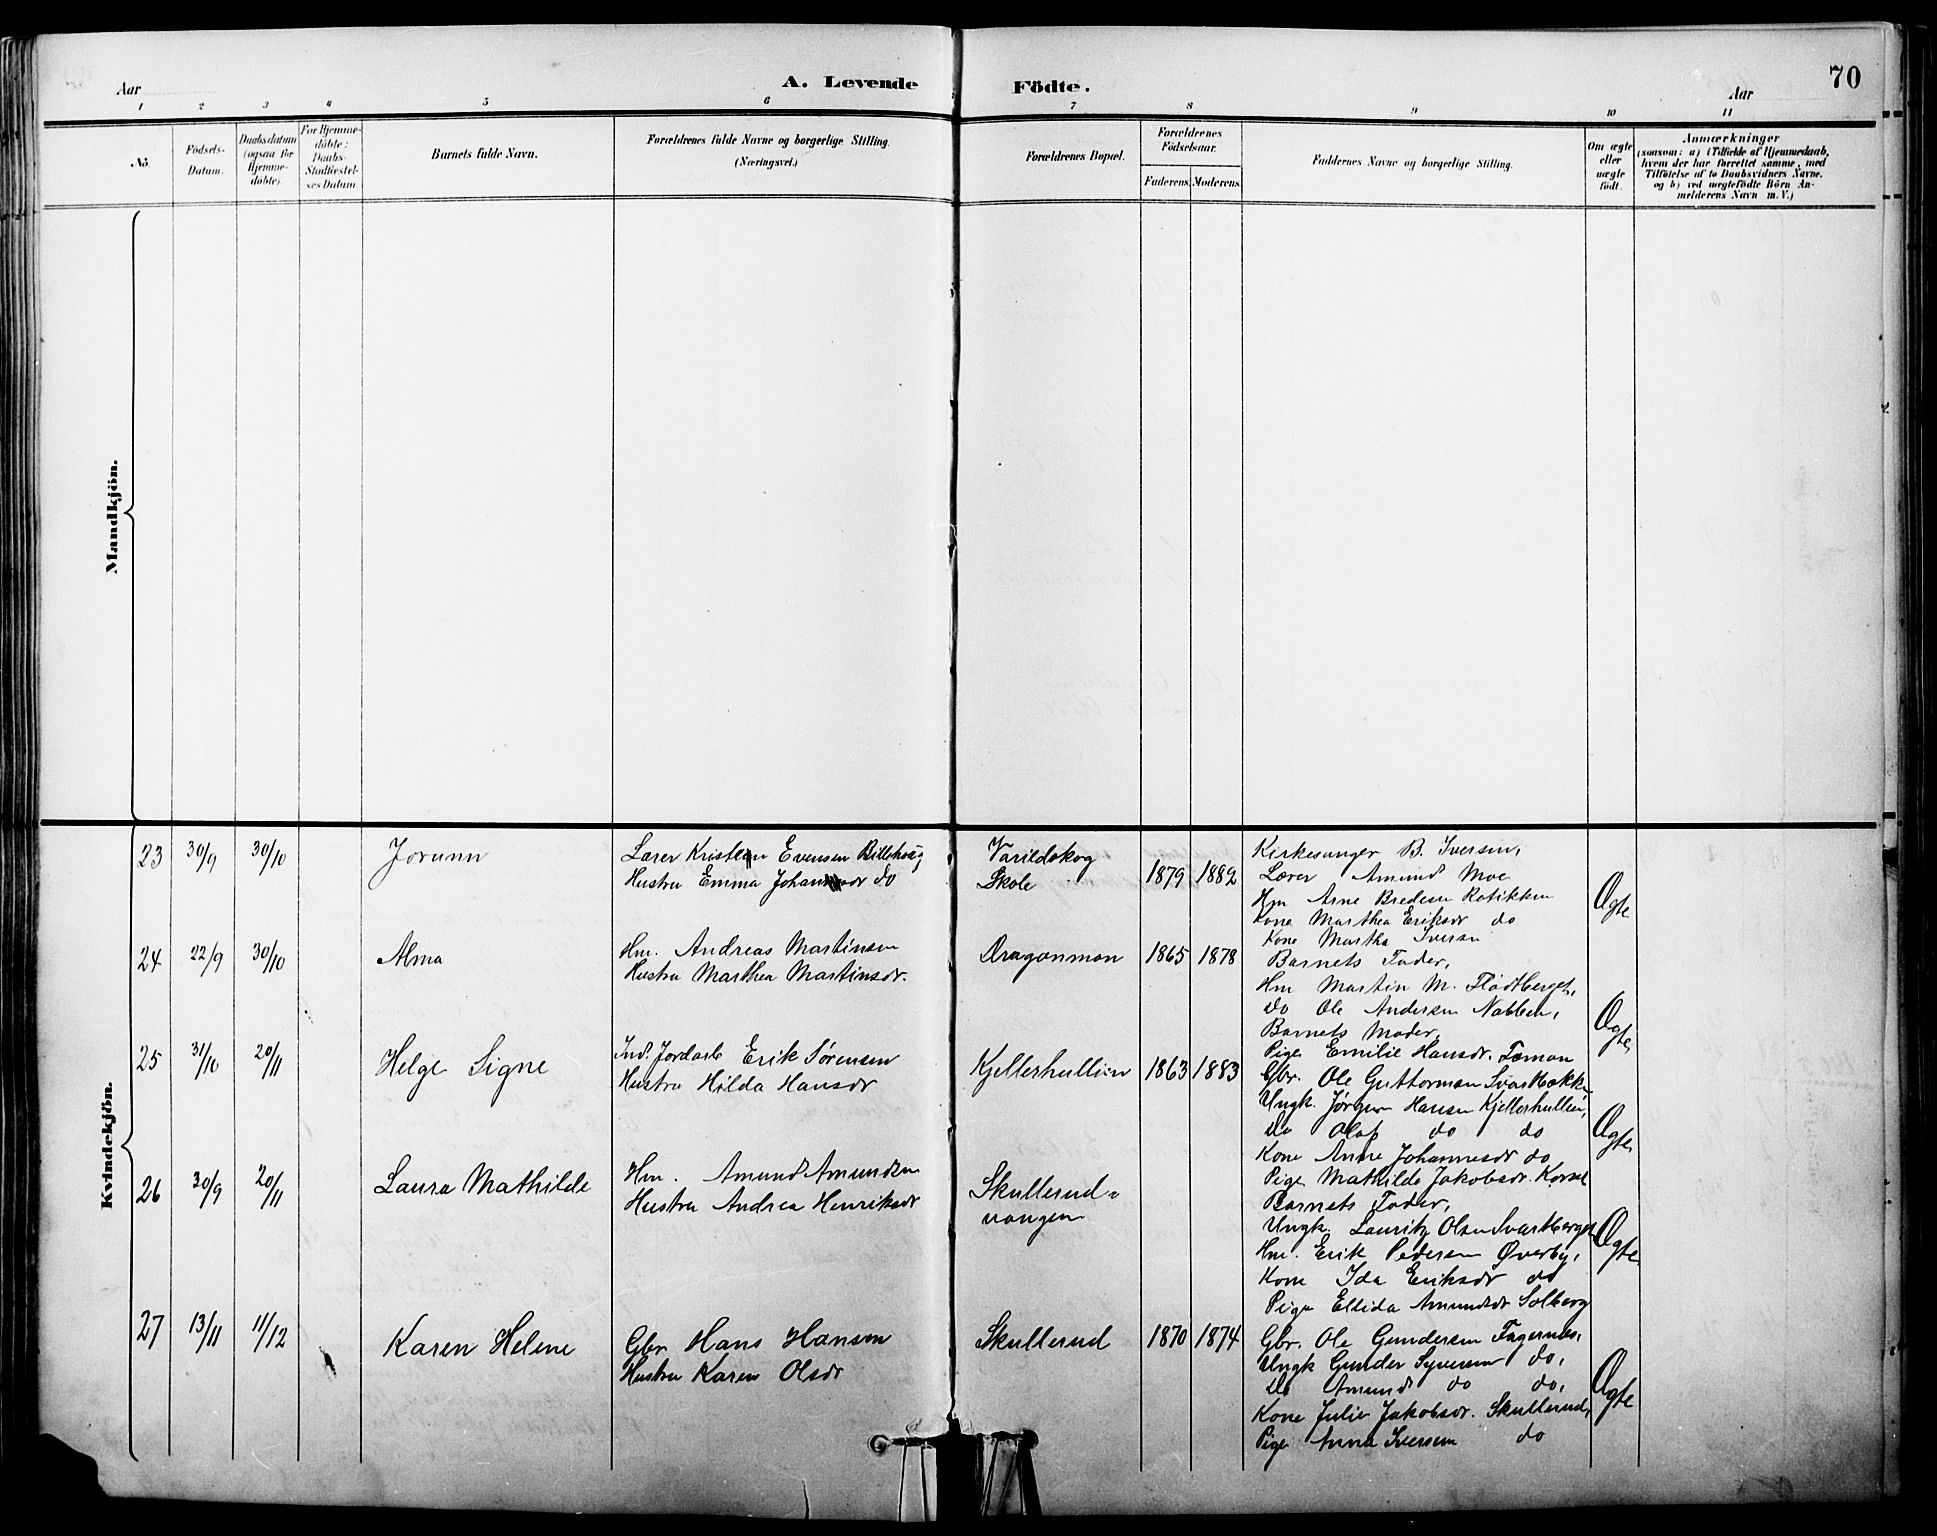 70
Aar
A. Levende
Födte.
Aar
1 2 3 4 5 6 7 8 9 10 11
No.
Födsels-
Datum.
Daabsdatum
(ogsaa for
Hjemme-
döbte).
For Hjemme-
döbte:
Daabs-
Stadfæstel-
ses Datum
Barnets fulde Navn.
Forældrenes fulde Navne og borgerlige Stilling.
(Næringsvei.)
Forældrenes Bopæl.
Forældrenes
Födselsaar.
Faderens.
Moderens.
Faddernes Navne og borgerlige Stilling.
Om ægte
eller
uægte
födt.
Anmærkninger
(saasom: a) i Tilfælde af Hjemmedaab,
hvem der har forrettet samme, med
Tilföielse af to Daabsvidners Navne,
og b) ved uægtefödte Börn An-
melderens Navn m.V.)
Mandkjön.
Kvindekjön.
23 30/9 30/10 Jorunn
Lærer Kristian Evensen Billehaug
Hustru Emma Johansdr do
Varildskog
Skole
1879 1882
Kirkesanger B. Iversen,
Lærer Amund Moe
Hm Arne Bredesen Rotikken
Kone Marthea Eriksdr do
Kone Martha Iversen
Ægte
24 22/9 30/10 Alma
Hm. Andreas Martinsen
Hustru Marthea Martinsdr.
Dragonmon
1865 1878
Barnets Fader,
Hm Martin M. Flodtberget,
do Ole Andersen Nabben,
Barnets Moder,
Pige Emilie Hansdr. Tomon
Ægte
25 31/10 20/11 Helge Signe
Ind. Jordarb Erik Sørensen
Hustru Hilda Hansdr
Kjellerhullien
1863 1883
Gbr. Ole Guttormsen Svartbække
Ungk. Jørgen Hansen Kjellerhullien,
do Olaf do do
Kone Anne Johannesdr do
Pige Mathilde Jakobsdr. Korsel
Ægte
26 30/9 20/11 Laura Mathilde
Hm. Amund Amundsen
Hustru Andrea Henriksdr
Skullerud=
vangen
Barnets Fader,
Ungk. Lauritz Olsen Svartberget
Hm. Erik Pedersen Øverby,
Kone Ida Eriksdr do
Pige Ellida Amundsdr Solberg
Ægte
27 13/11 11/12 Karen Helene
Gbr Hans Hansen
Hustru Karen Olsdr
Skullerud
1870 1874
Gbr. Ole Gundersen Fagernes,
Ungk Gunder Syversen do,
do Amund do do,
Kone Julie Jakobsdr. Skullerud,
Pige Anna Iversen do
Ægte